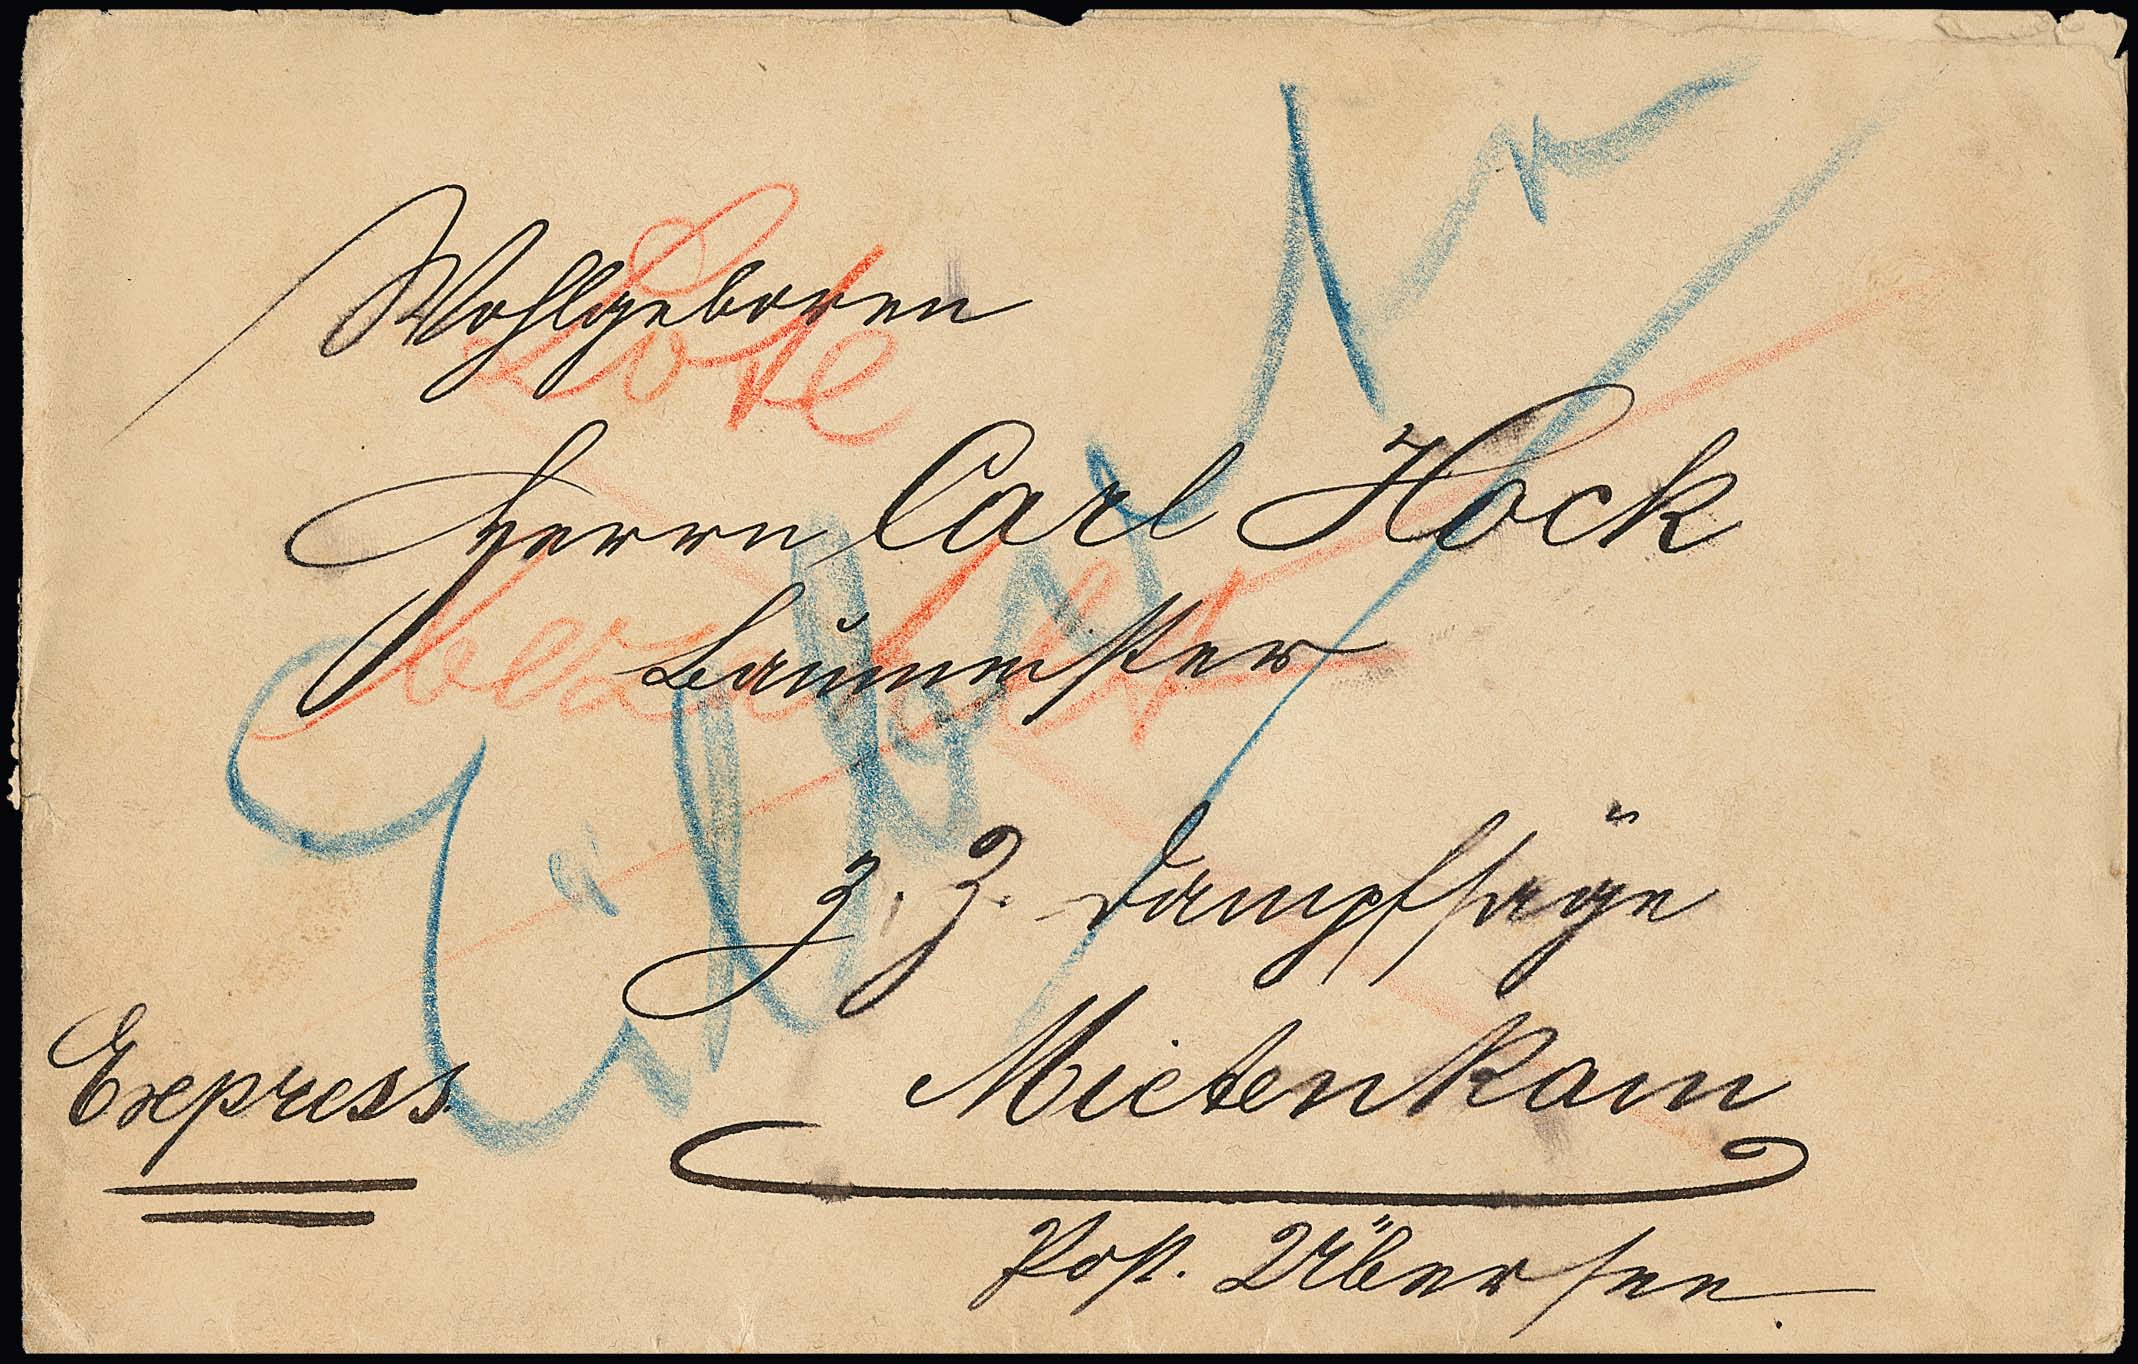 Wohlgeboren
Bote
Herrn Carl Hock
bezahlt
Baumeister
z. Z. Dampfsäge
Express
Mietenkam
Post. Übersee